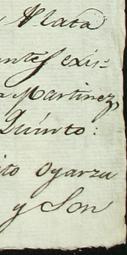 y Plata
antes exis-
Martinez,
Quinto:
ito Oyarza
y Son